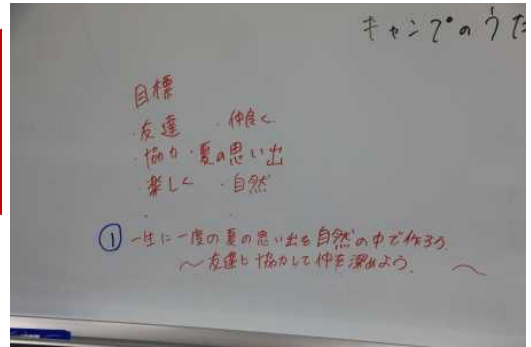 キャンプのうた
目標
・友達 ・仲良く
・協力 ・夏の思い出
・楽しく ・自然
・ ・
① 一生に一度の夏の思い出を自然の中で作ろう
～友達と協力して仲を深めよう。～